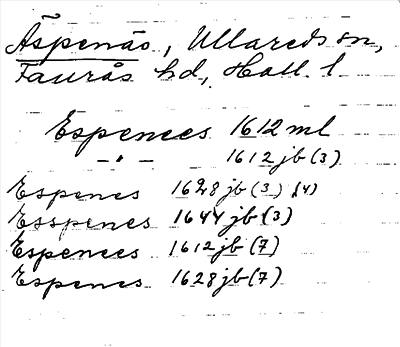 Äspenäs, Ullareds sn,
Faurås hd, Hall. l.
Espenees 1612 ml
— " — 1612 jb (3)
Espenes 1628 jb (3) (4)
Esspenes 1644 jb (3)
Espenees 1612 jb (7)
Espenes 1628 jb (7)